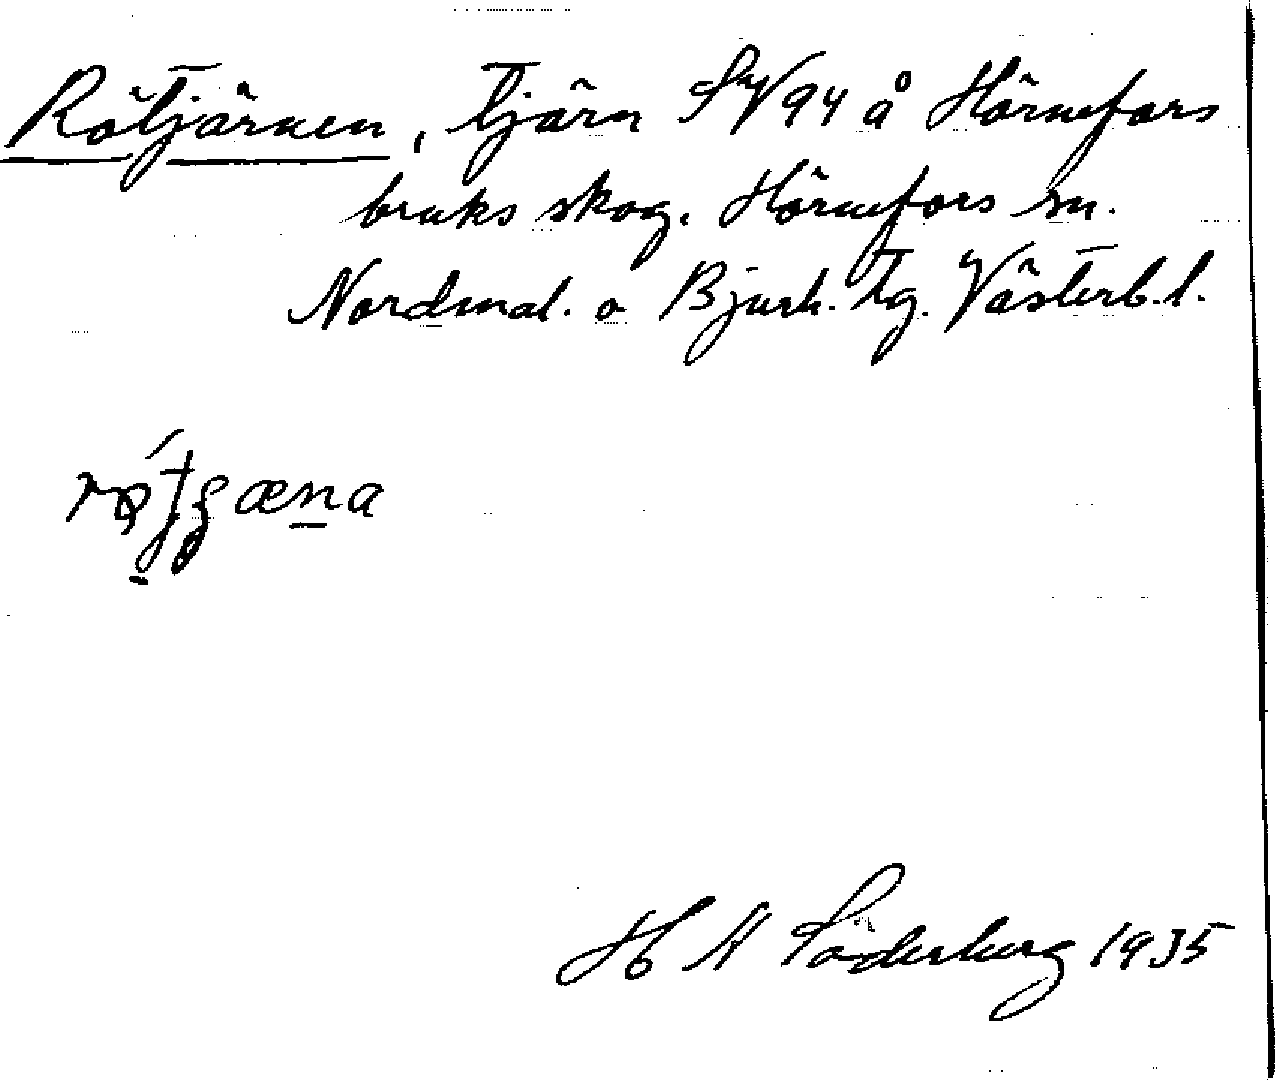 Rötjärnen, tjärn SV 94 å Hörnefors
bruks skog. Hörnefors sn.
Nordmal. o Bjurh. tg. Västerb. l.
H A Söderberg 1935